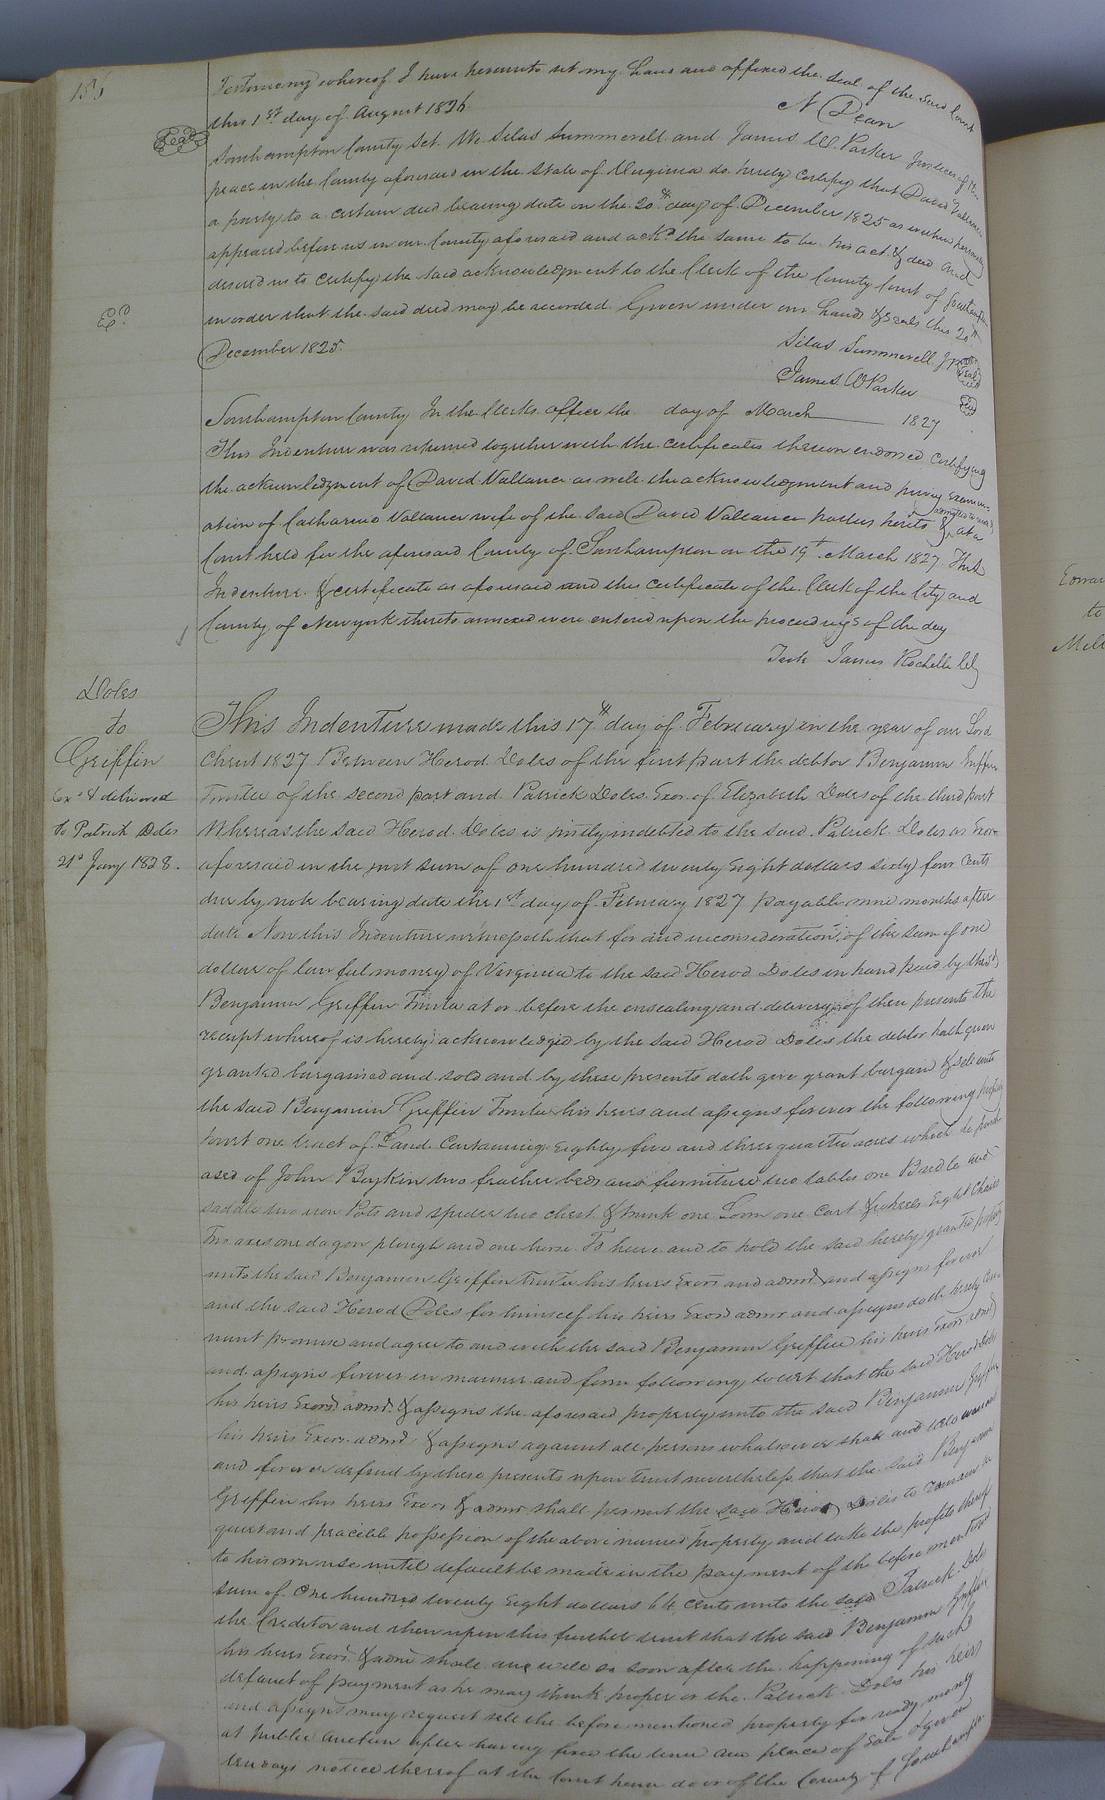 136
Testimony whereof I have hereunto set my hand and affixed the seal of the said Court
this 1st day of August 1826.
N Dean
Seal
Southampton County Sct. We Silas Summerell and James W. Parker Justices of the
peace in the County aforesaid in the State of Virginia do hereby certify that David Vallance
a party to a certain deed bearing date on the 20th day of December 1825 as within personally
appeared before us in our County aforesaid and ackd the same to be his act & deed and
desired us to certify the said acknowledgment to the Clerk of the County Court of Southampton
in order that the said deed may be recorded. Given under our hands & seals this 20th
Exd
December 1825.
Silas Summerell Jp Seal
James W Parker Seal
Southampton County In the Clerks office the day of March 1827
This Indenture was returned together with the certificates thereon endorsed certifying
the acknowledgment of David Vallance as well the acknowledgment and privy examin-
ation of Catharine Vallance wife of the said David Vallance parties hereto & at a
Court held for the aforesaid County of Southampton on the 19th March 1827. This
Indenture & certificate as aforesaid and the certificate of the Clerk of the City and
County of New york thereto annexed were entered upon the proceedings of the day
Teste James Rochelle Clk
Doles
to
Griffin
Exd & delivered
to Patrick Doles
21st Jany 1828.
This Indenture made this 17th day of February in the year of our Lord
Christ 1827 Between Herod Doles of the first part the debtor Benjamin Griffin
Trustee of the second part and Patrick Doles Exor. of Elizabeth Doles of the third part
Whereas the said Herod Doles is justly indebted to the said Patrick Doles as Exor
aforesaid in the just sum of one hundred twenty Eight dollars sixty four cents
due by note bearing date the 1st day of February 1827 payable nine months after
date Now this Indenture witnesseth that for and in consideration of the sum of one
dollar of lawful money of Virginia to the said Herod Doles in hand paid by the sd
Benjamin Griffin Trustee at or before the ensealing and delivery of these presents the
receipt whereof is hereby acknowledged by the said Herod Doles the debtor hath given
granted bargained and sold and by these presents doth give grant bargain & sell unto
the said Benjamin Griffin Trustee his heirs and assigns forever the following property
towit one tract of Land Containing Eighty five and three quarter acres which he purch
ased of John Boykin two feather beds and furniture two tables one Bridle and
saddle two iron Pots and spider two chest & trunk one Loom one Cart & wheels Eight Chairs
Two axes one dagon plough and one horse. To have and to hold the said hereby granted property
unto the said Benjamin Griffin Trustee his heirs Exors and admrs and assigns forever
and the said Herod Doles for himself his heirs Exors admrs and assigns doth hereby Cove
nant promise and agree to and with the said Benjamin Griffin his heirs Exors admrs
and assigns forever in manner and form following towit that the said Herod Doles
his heirs Exors admrs & assigns the aforesaid property unto the said Benjamin Griffin
his heirs Exors admrs & assigns against all persons whatsoever shall and will warrant
and forever defend by these presents upon trust nevertheless that the said Benjamin
Griffin his heirs Exors & admrs shall permit the said Herod Doles to remain in
quiet and peacible possession of the above named property and take the profits thereof
to his own use until default be made in the payment of the before mentioned
sum of One hundred twenty Eight dollars 64 cents unto the said Patrick Doles
the Creditor and then upon this further trust that the said Benjamin Griffin
his heirs Exors & admrs shall and will so soon after the happening of such
default of payment as he may think proper or the Patrick Doles his heirs
and assigns may request sell the before mentioned property for ready money
at public auction after having fixed the time and place of sale & given
ten days notice thereof at the Court house door of the County of Southampton
Edward
to